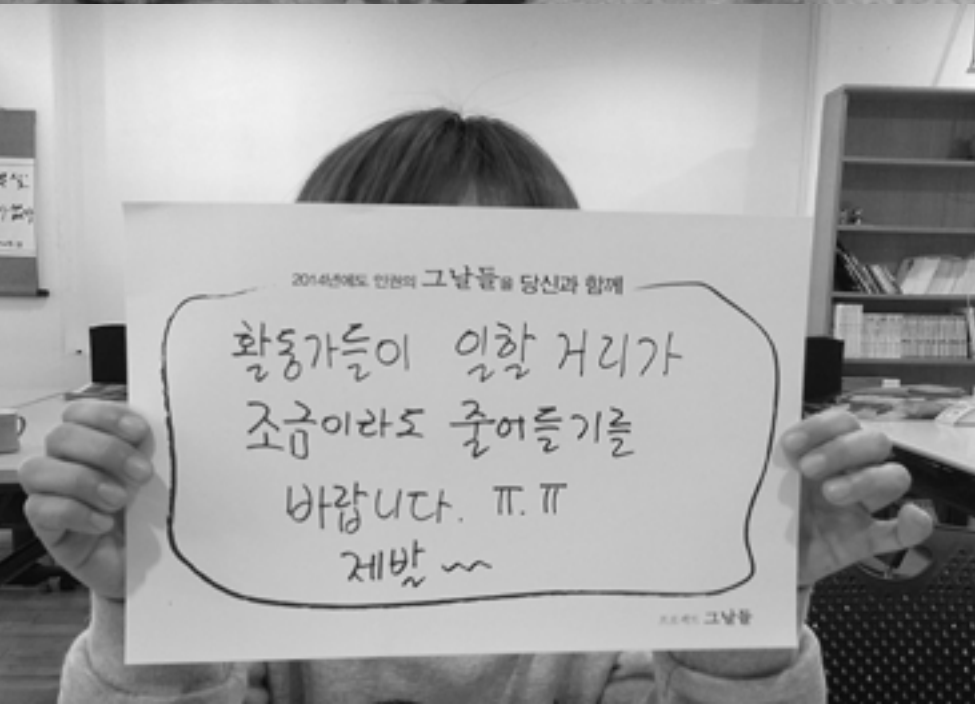 2014년에도 인권의 그날들을 당신과 함께
활동가들이 일할 거리가
조금이라도 줄어들기를
바랍니다. ㅠ.ㅠ
제발~~
프로젝트 그날들